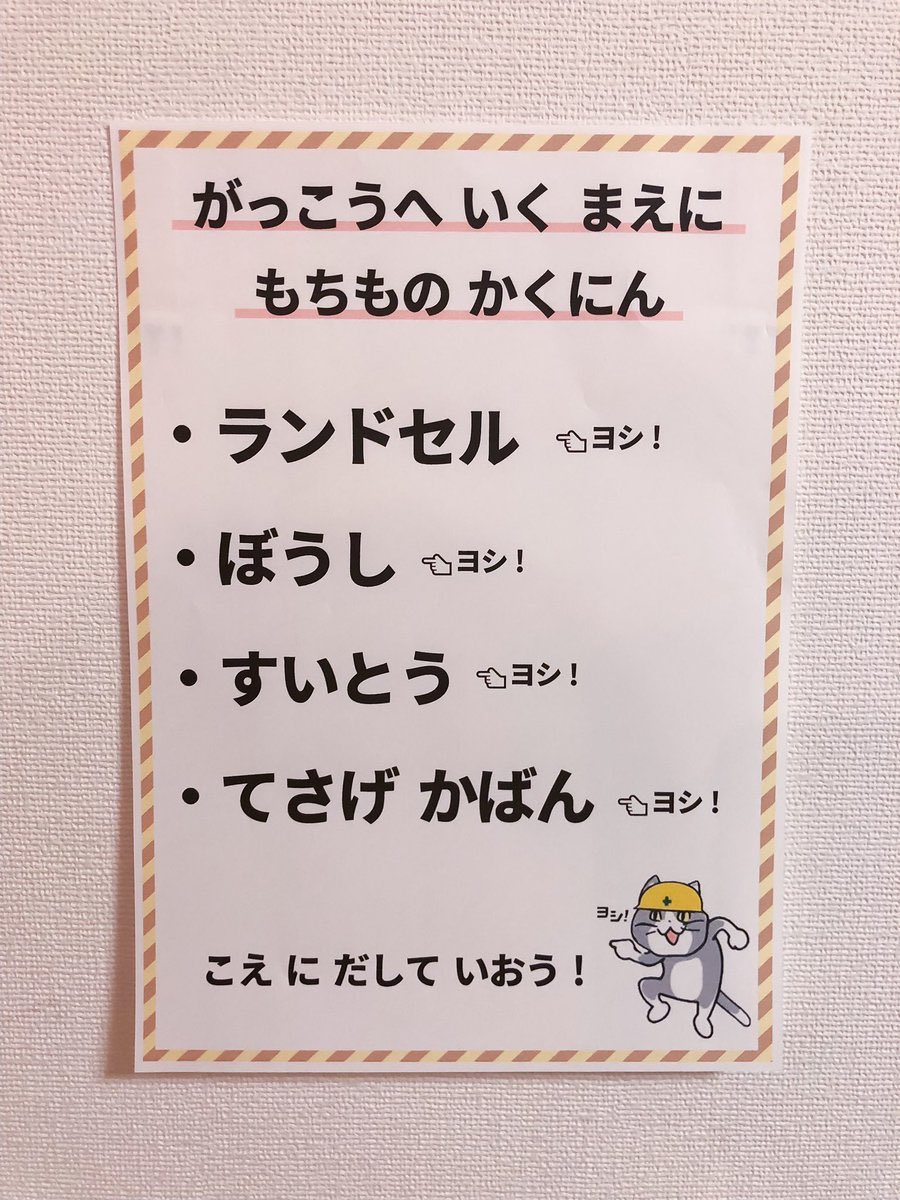 がっこうへ いく まえに
もちもの かくにん
・ランドセル ☜ヨシ！
・ぼうし ☜ヨシ！
・すいとう ☜ヨシ！
・てさげ かばん ☜ヨシ！
ヨシ!
こえ に だして いおう！